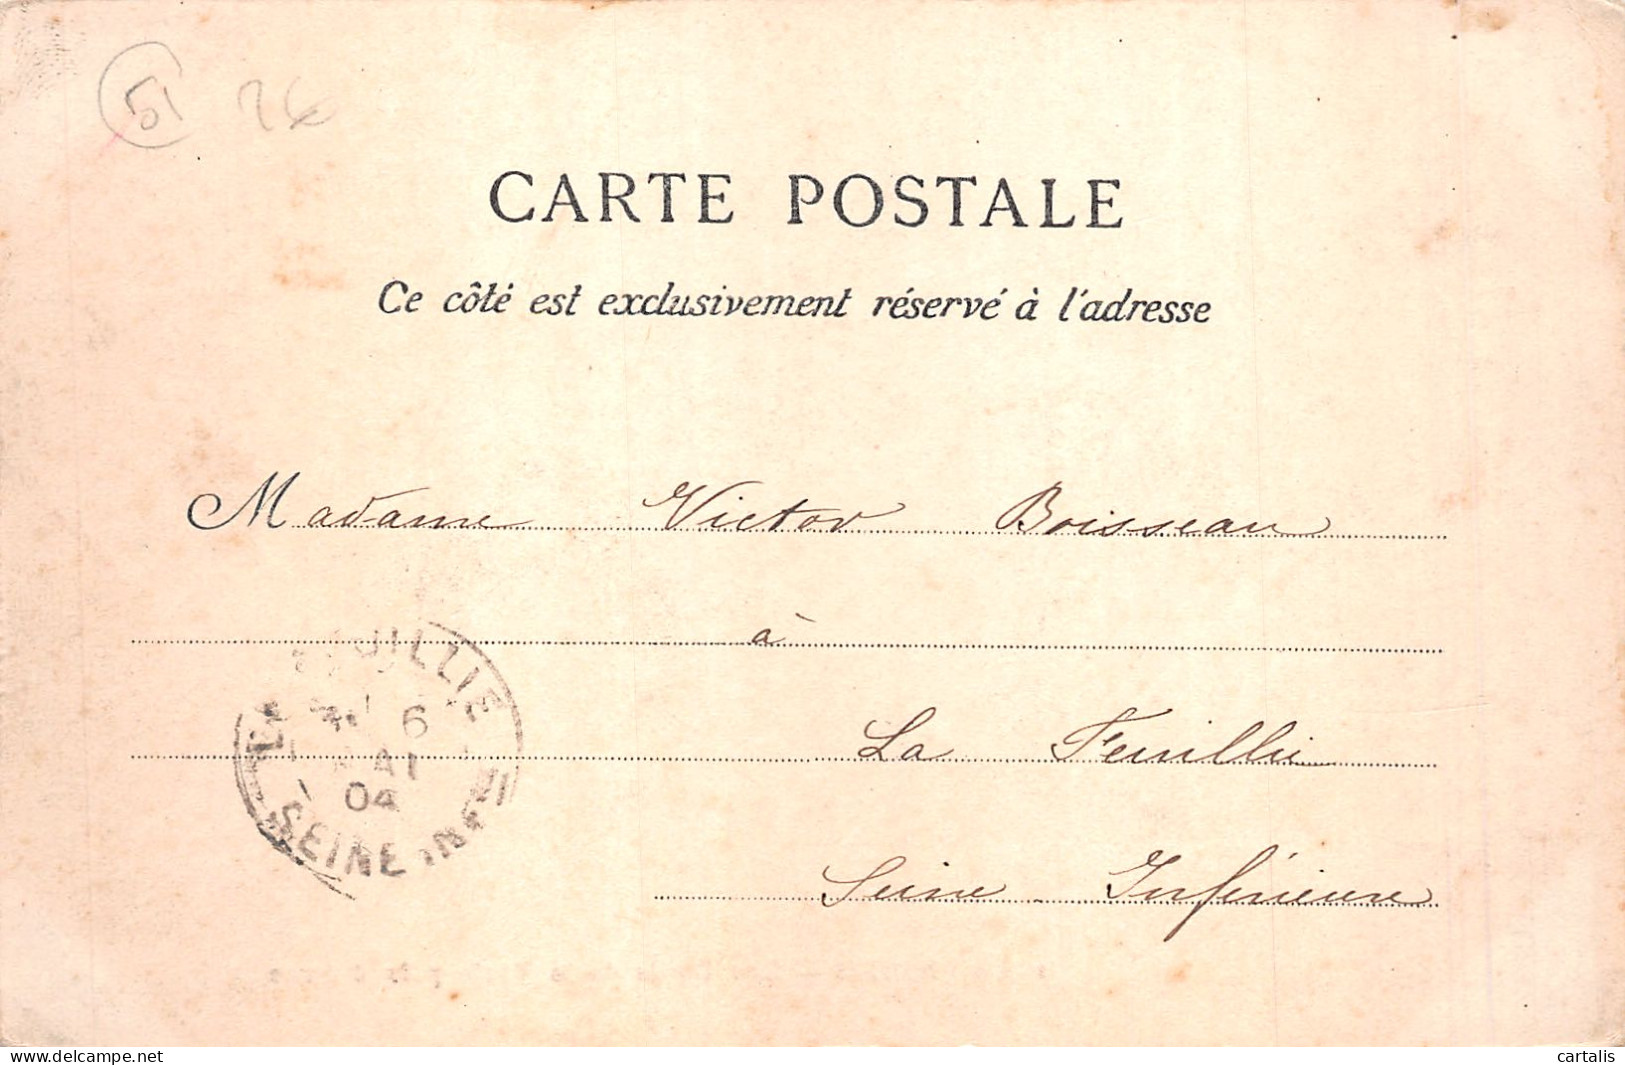 51 26
CARTE POSTALE
Ce côté est exclusivement réservé à l'adresse
Madame Victor Boisseau
à
La Feuillie
Seine Inférieure
LA FEUILLIE
6
MAI
04
SEINE INF
www.delcampe.net
cartalis